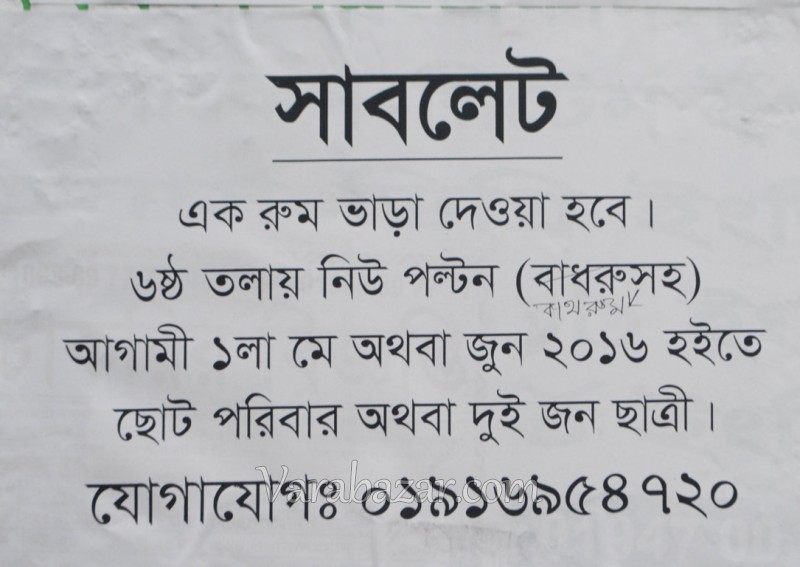 সাবলেট
এক রুম ভাড়া দেওয়া হবে।
৬ষ্ঠ তলায় নিউ পল্টন (বাধরুসহ)
বাথরুম
আগামী ১লা মে অথবা জুন ২০১৬ হইতে
ছোট পরিবার অথবা দুই জন ছাত্রী।
যোগাযোগঃ ০১৯১৬৯৫৪৭২০
Varabazar.com